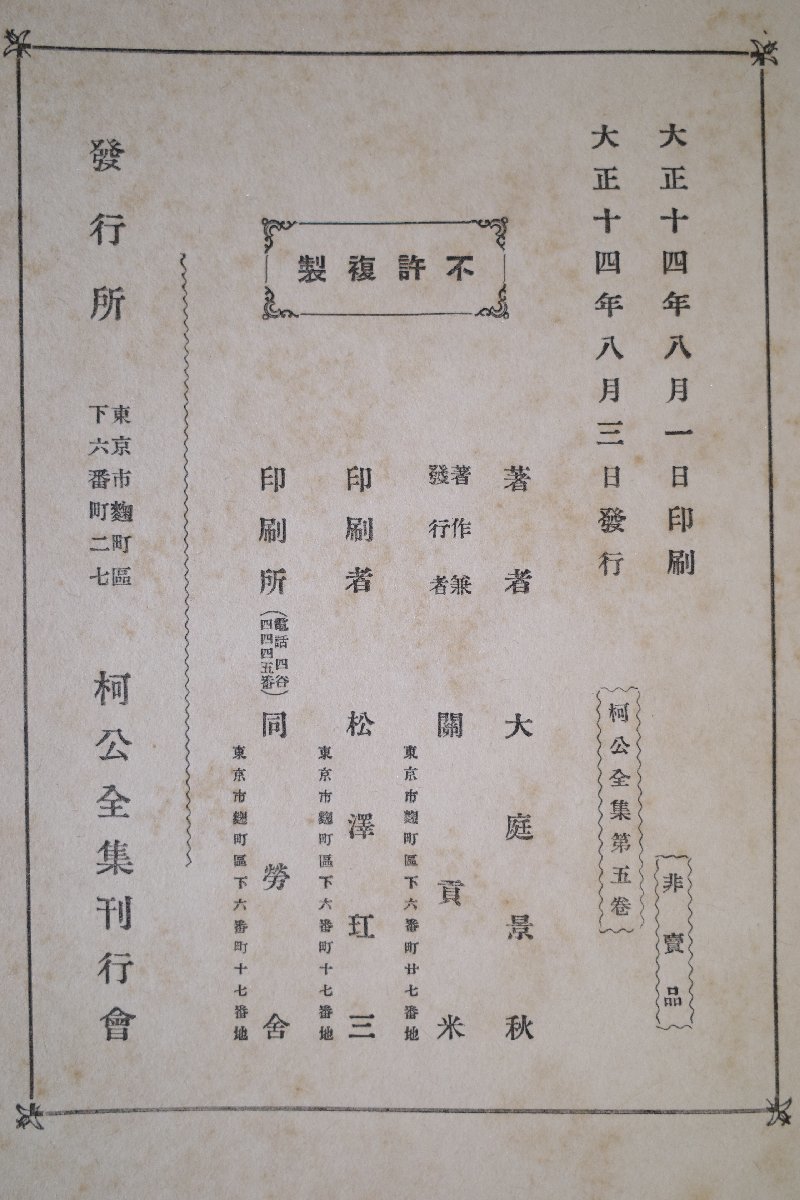 大正十四年八月一日印刷
大正十四年八月三日發行
非賣品
柯公全集第五卷
不許複製
著者 大庭景秋
著作兼
發行者
東京市麴町區下六番町廿七番地
關貢米
印刷者
東京市麴町區下六番町十七番地
松澤玒三
印刷所
(電話四谷
四四四五番)
東京市麴町區下六番町十七番地
同勞舍
發行所
東京市麴町區
下六番町二七
柯公全集刊行會